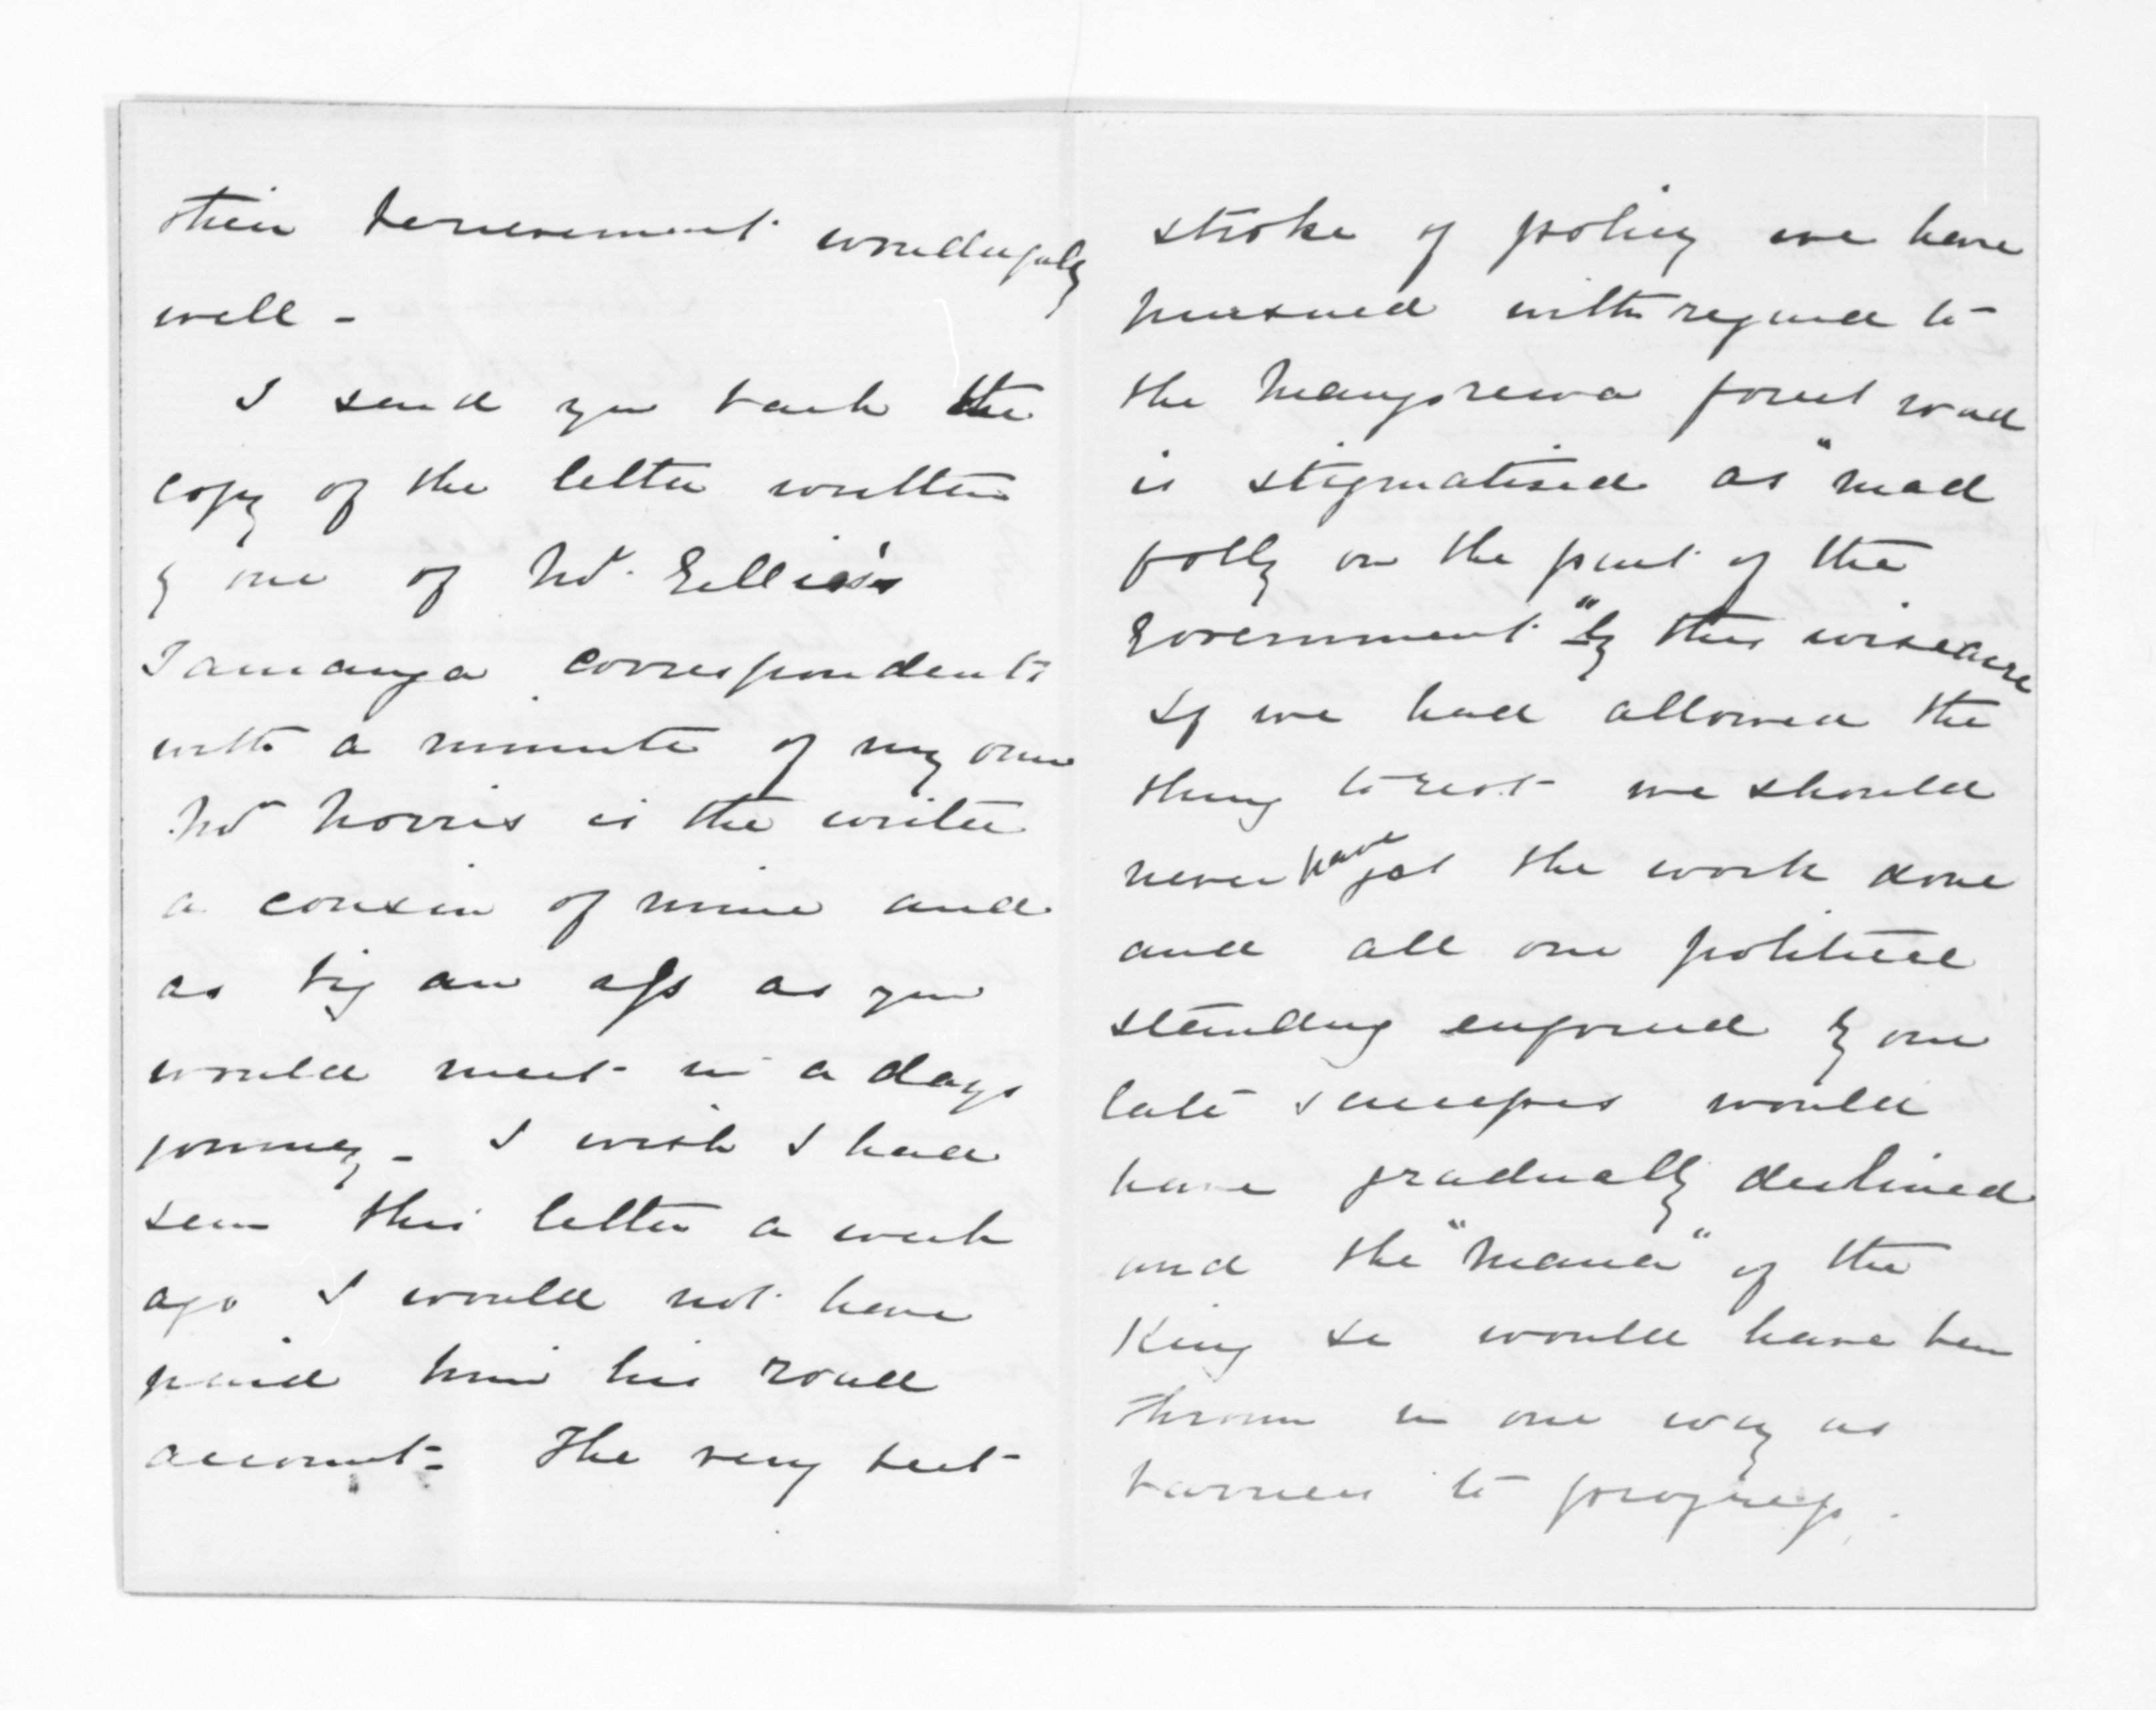 their bereavement wonderfully
well -
I send you back the
copy of the letter written
by one of Mr. Ellis's
Tauranga correspondents
with a minute of my own
Mr Norris is the writer
a cousin of mine and
as big an ass as you
would meet in a days
journey - I wish I had
seen this letter a week
ago I would not have
paid him his road
account - The very best
stroke of policy we have
pursued with regard to
the Mangorewa forest road
is stigmatised as "mad
folly on the part of the
Government" by this wiseacre
If we had allowed the
thing to rest we should
never have got the work done
and all our political
standing enforced by our
late successes would
have gradually declined
and the "mana" of the
King &c would have been
thrown in our way as
barriers to progress.